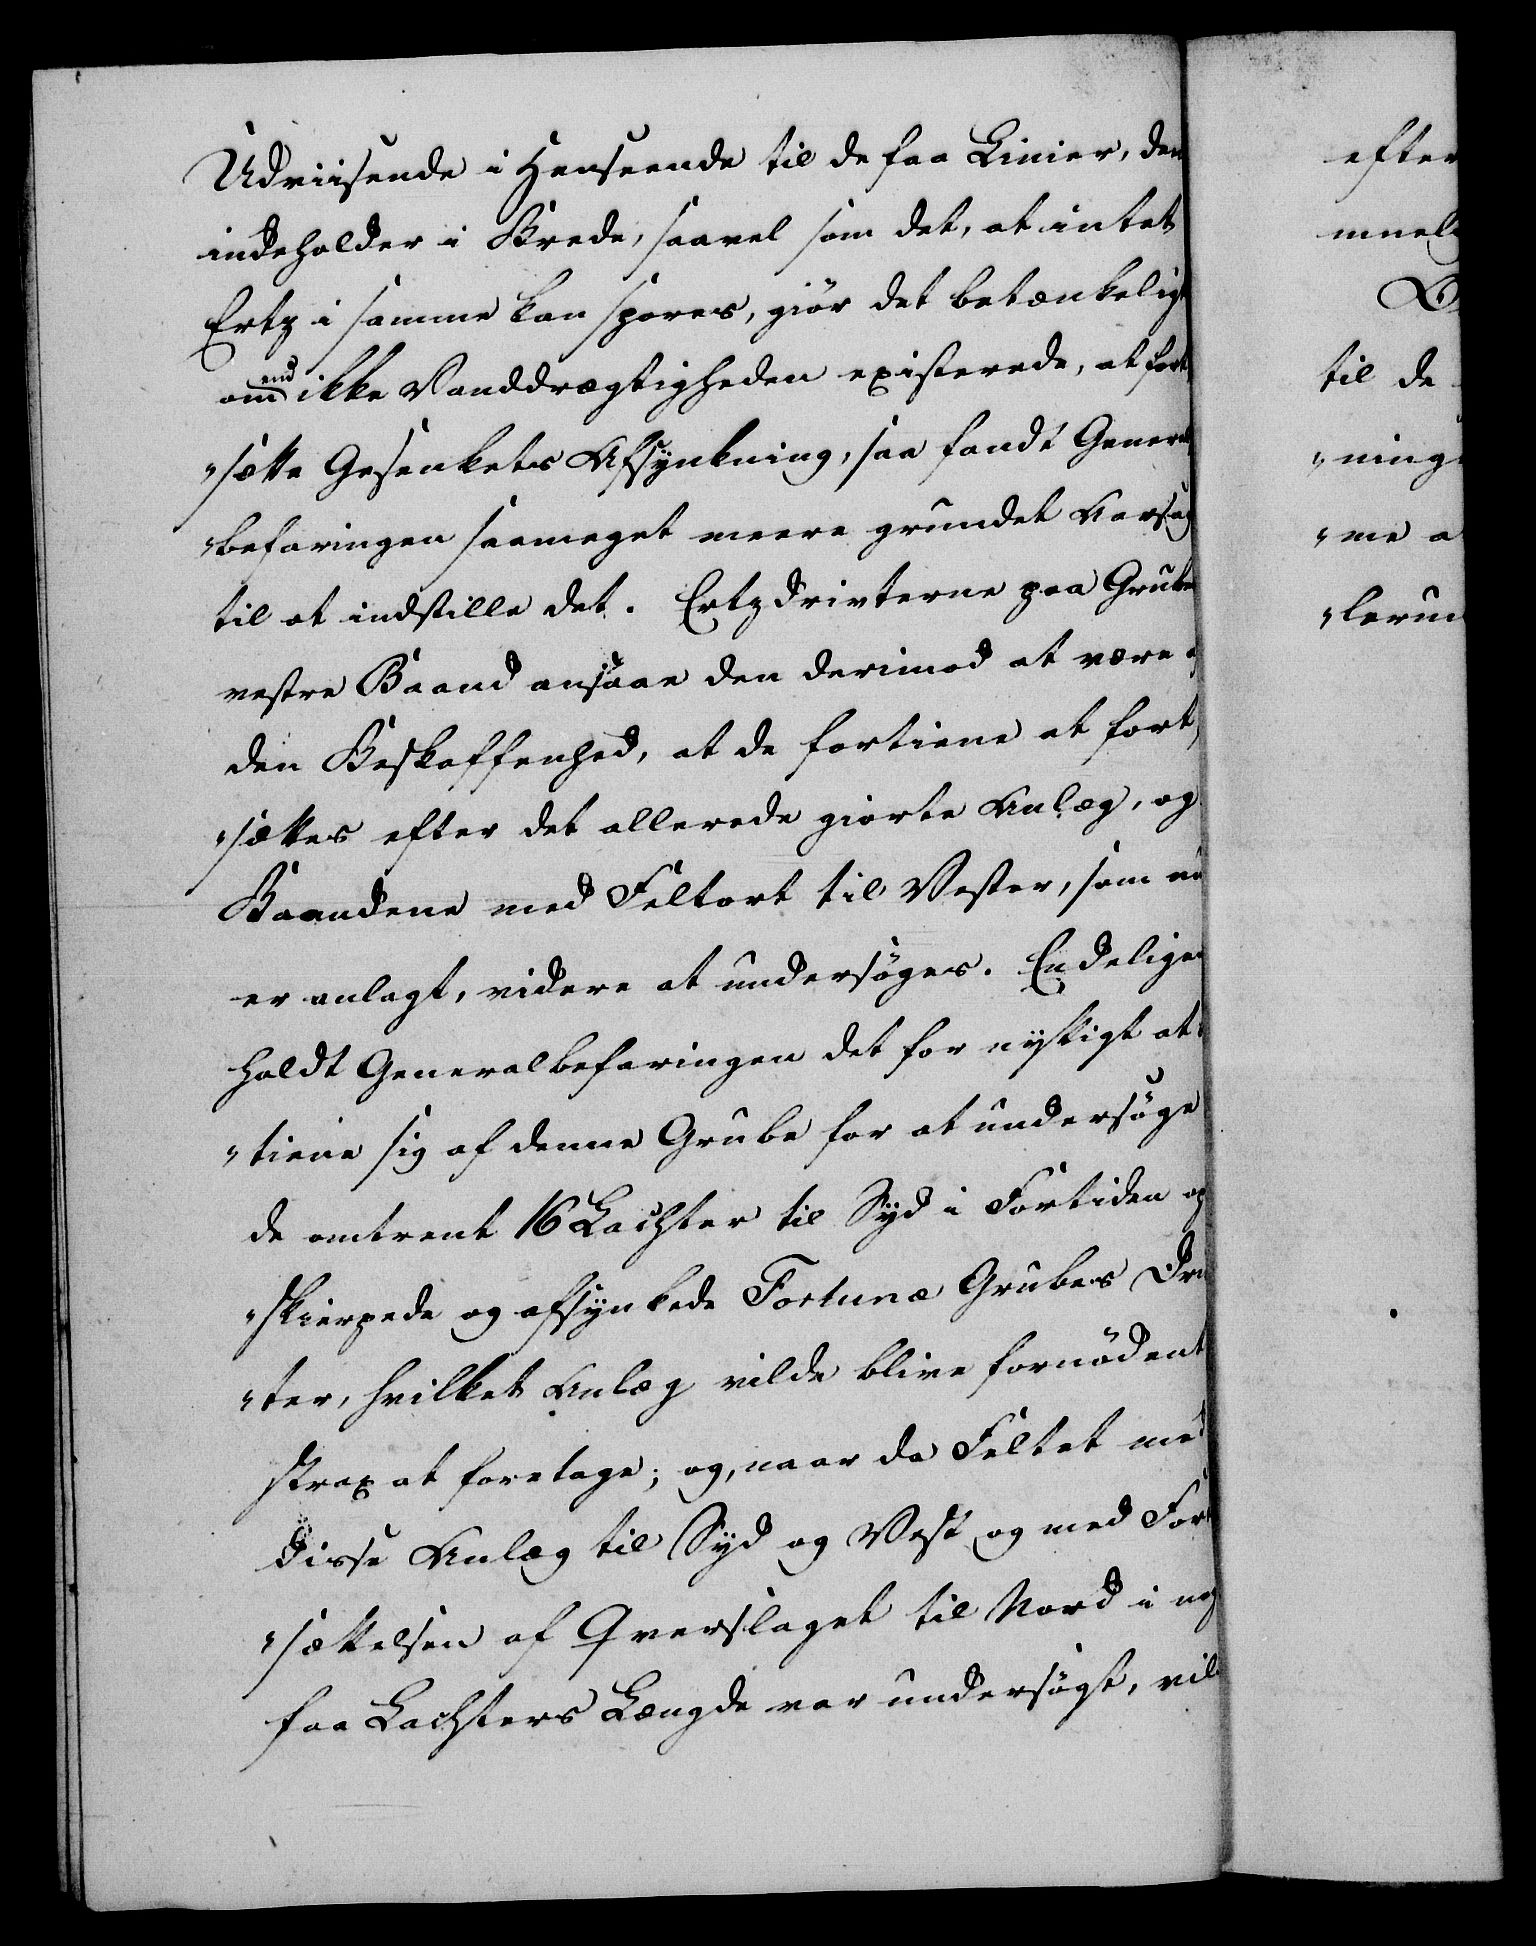 Udviisende i Henseende til de faa Linier, den
indeholder i Brede, saavel som det, at intet
Ertz i samme kan spores, giør det betænkeligt
om end ikke Vanddrægtigheden existerede, at fort
"sætte Gesenkets Afsynkning, saa fandt General
"befaringen saameget meere grundet Aarsag
til at indstille det. Ertzdrivterne paa Grubens
vestre Baand ansaae den derimod at være af
den Beskaffenhed, at de fortiene at fort,
"sættes efter det allerede giorte Anlæg, og
Baandene med Feltort til Vester, som nu
er anlagt, videre at undersøges. Endeligen
holdt Generalbefaringen det for nyttigt at be
"tiene sig af denne Grube for at undersøge
de omtrent 16 Lachter til Syd i Fortiden op
"skierpede og afsynkede Fortuna Grubes Driv
"ter, hvilket Anlæg vilde blive fornødent
strax at foretage; og, naar da Feltet med
disse Anlæg til Syd og Vest og med Fort
"sættelsen af Qverslaget til Nord i nog
faa Lachters Længde var undersøgt, vil
efter
til de
"ning
"me a